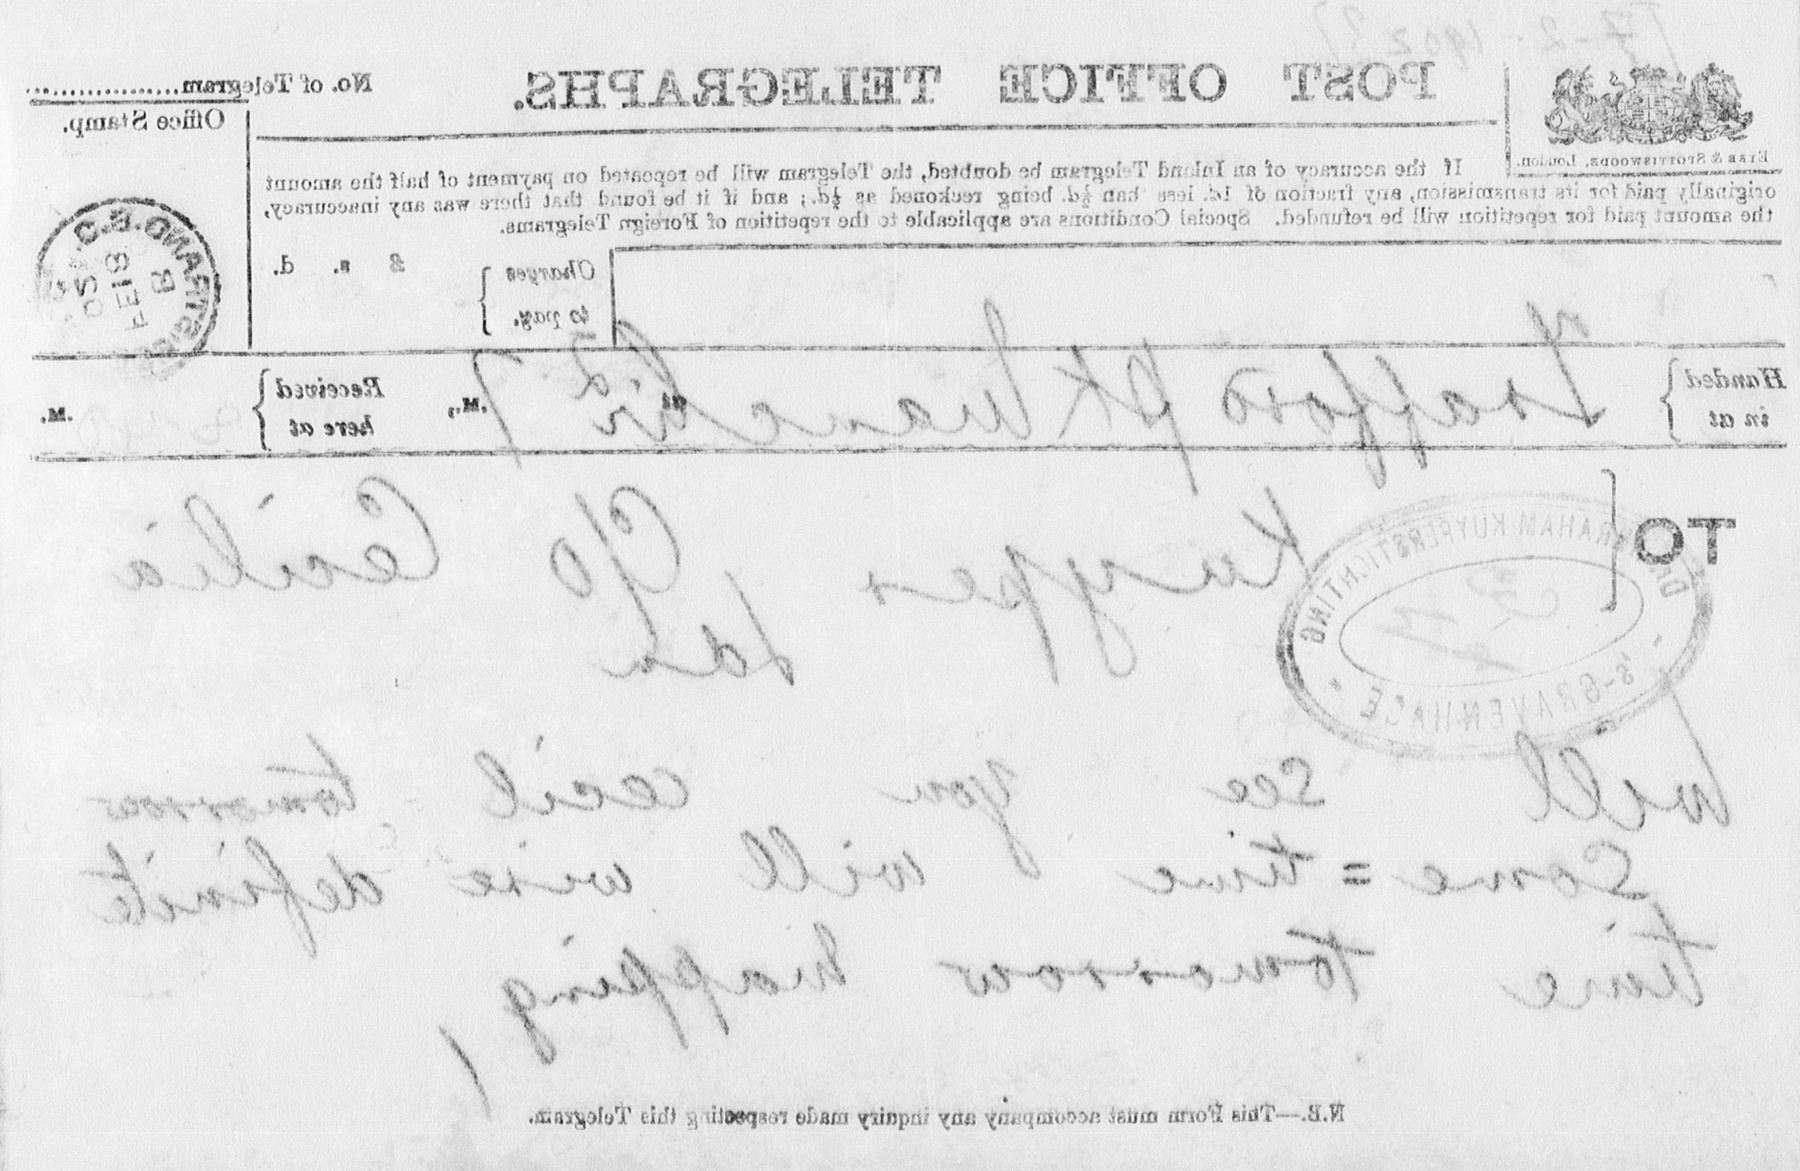 [7-2-1902?]
POST OFFICE TELEGRAPHS.
No. of Telegram
Office Stamp.
EYRE & SPOTTISWOODE, LONDON.
If the accuracy of an Inland Telegram be doubted, the Telegram will be repeated on payment of half the amount
originally paid for its transmission, any fraction of 1d. less than ½d. being reckoned as ½d.; and if it be found that there was any inaccuracy,
the amount paid for repetition will be refunded. Special Conditions are applicable to the repetition of Foreign Telegrams.
Charges to pay. } £ s. d.
B
FE 8
02
Handed in at } Trafford pk Manchr 7 .M.,
Received here at } .M.
TO { Kuyper c/o Cecilia
DR. ABRAHAM KUYPERSTICHTING
'S-GRAVENHAGE
Will see you cecil tomorrow
Some = time will wire definite
time tomorrow happing
N.B.—This Form must accompany any inquiry made respecting this Telegram.